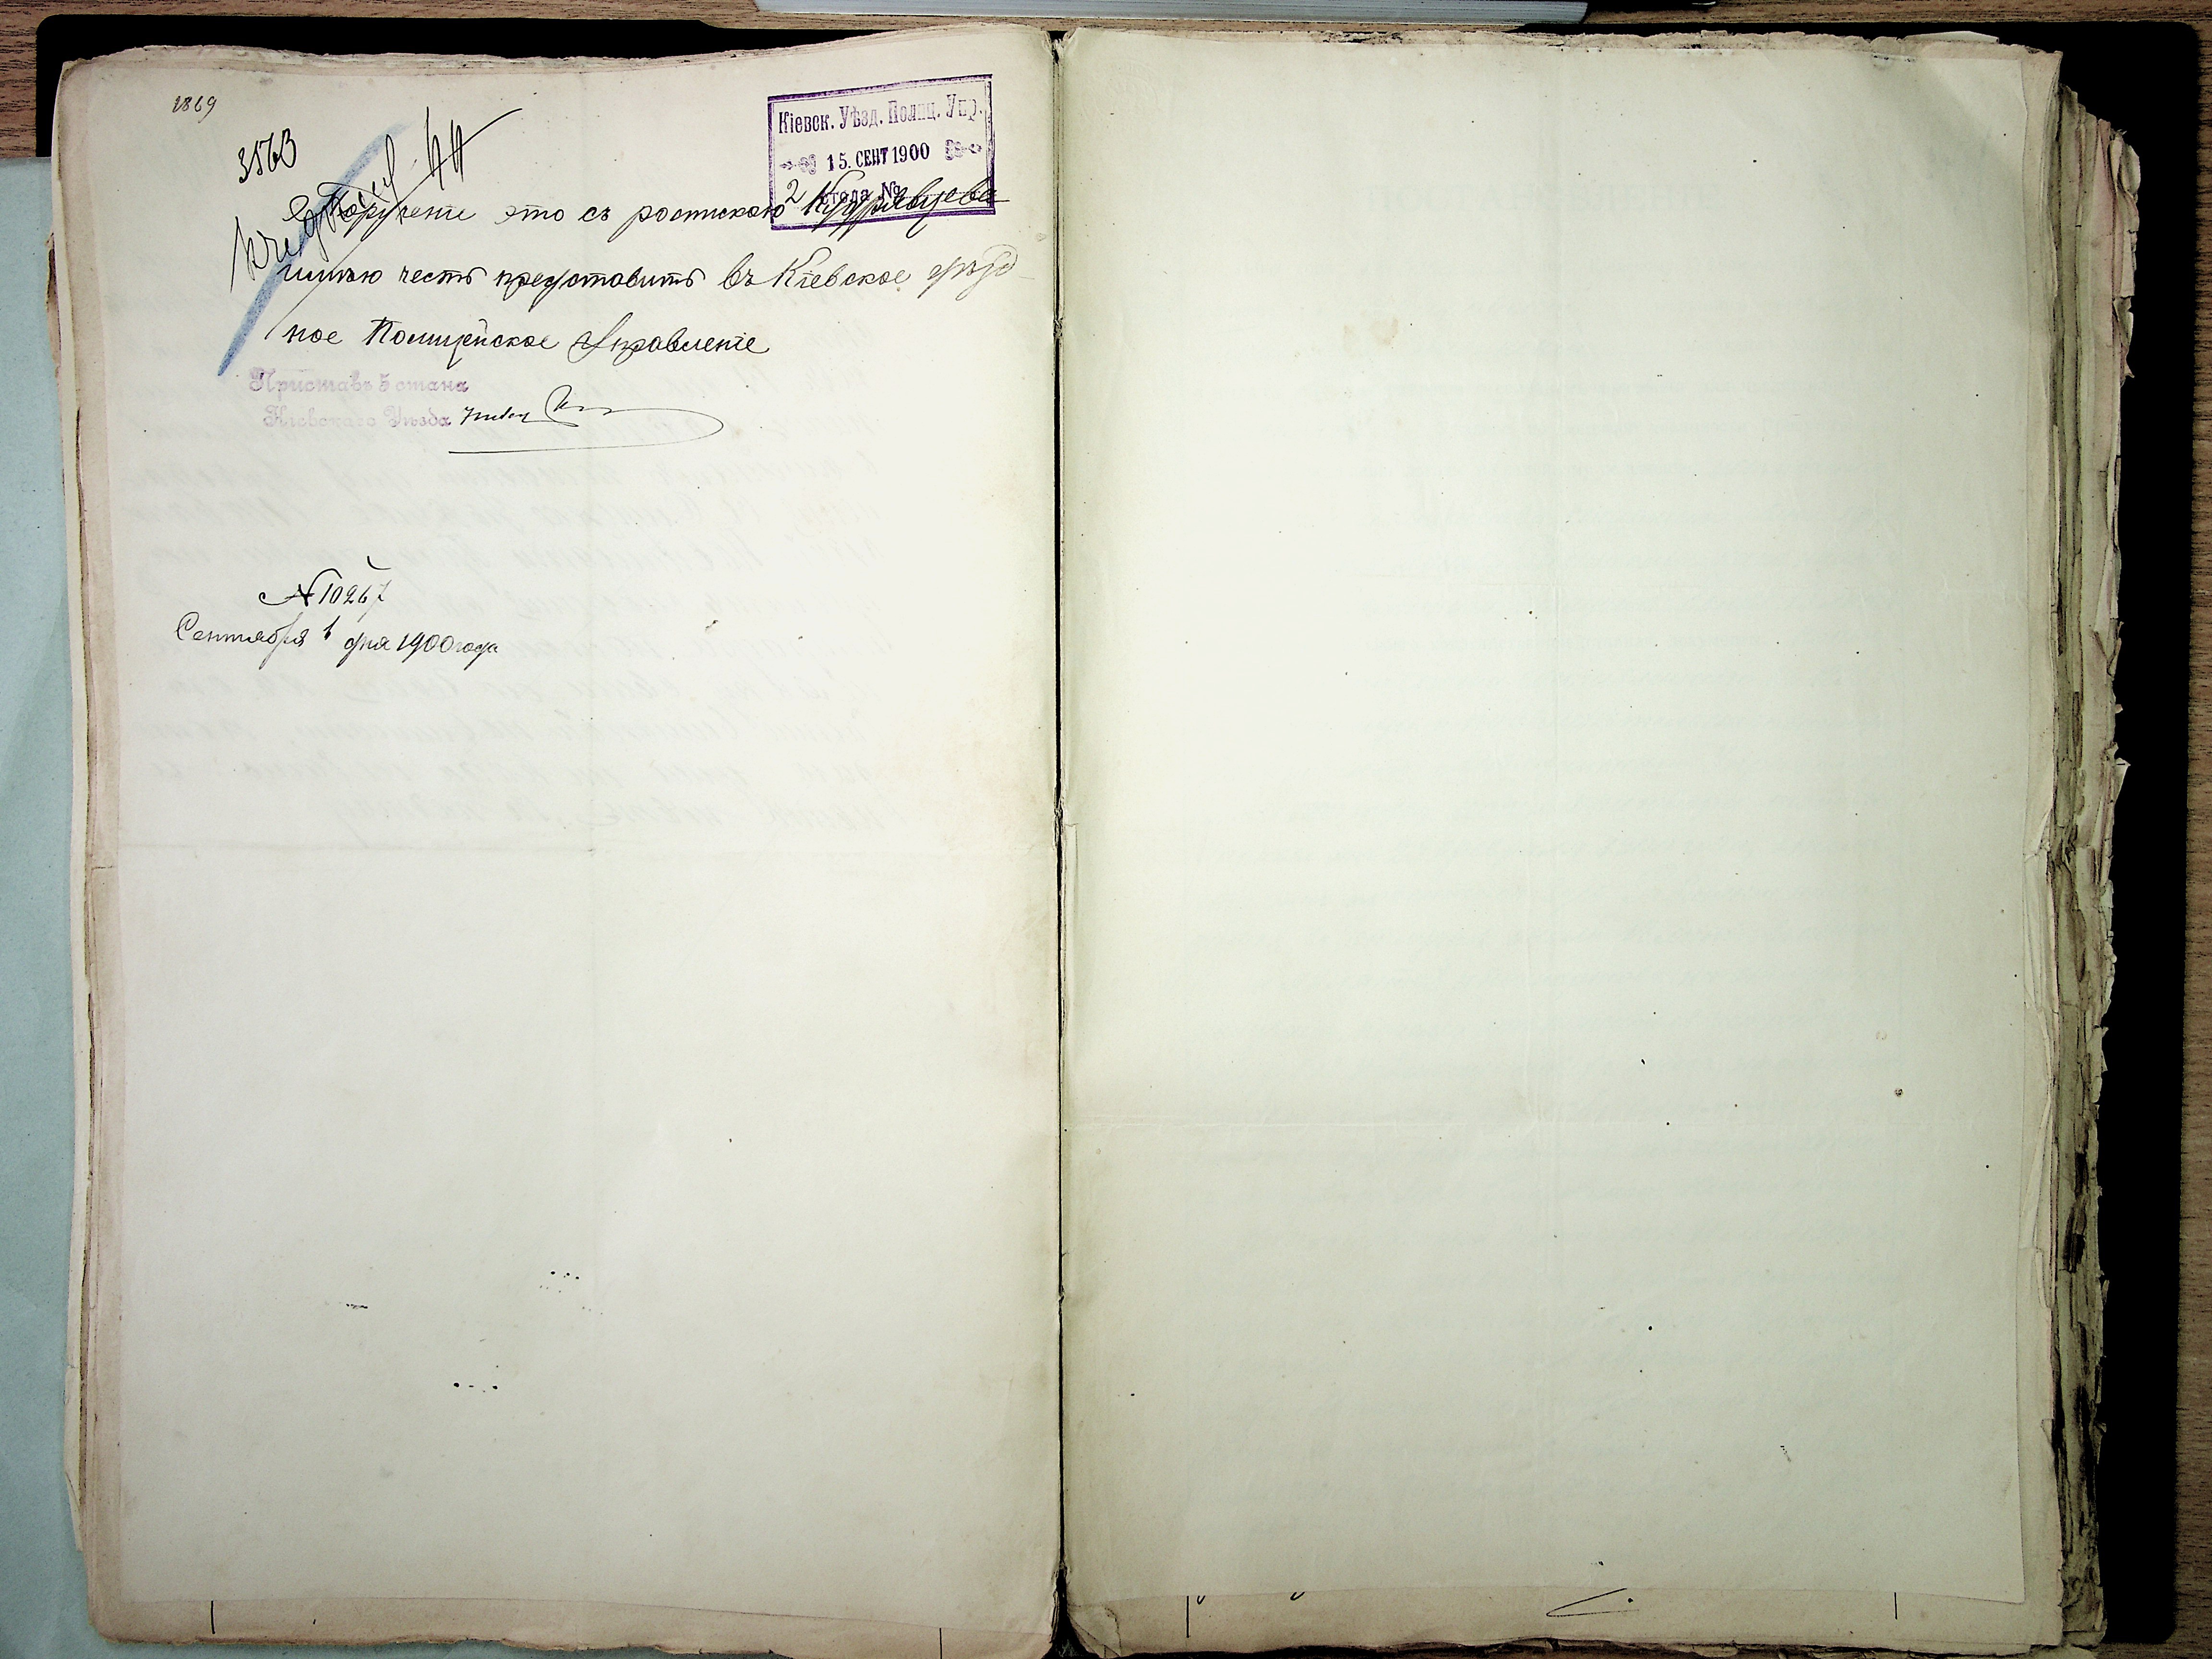 1869
3563
Кіевск. Уѣзд. Полиц. Упр.
15. СЕНТ 1900
2 Стола №
Порученіе это съ роспискою Кудрявцева
имѣю честь представить въ Кіевское уѣзд
ное Полицейское Управленіе
Приставъ 5 стана
Кіевскаго Уѣзда
№ 10267
Сентября 1 дня 1900 года